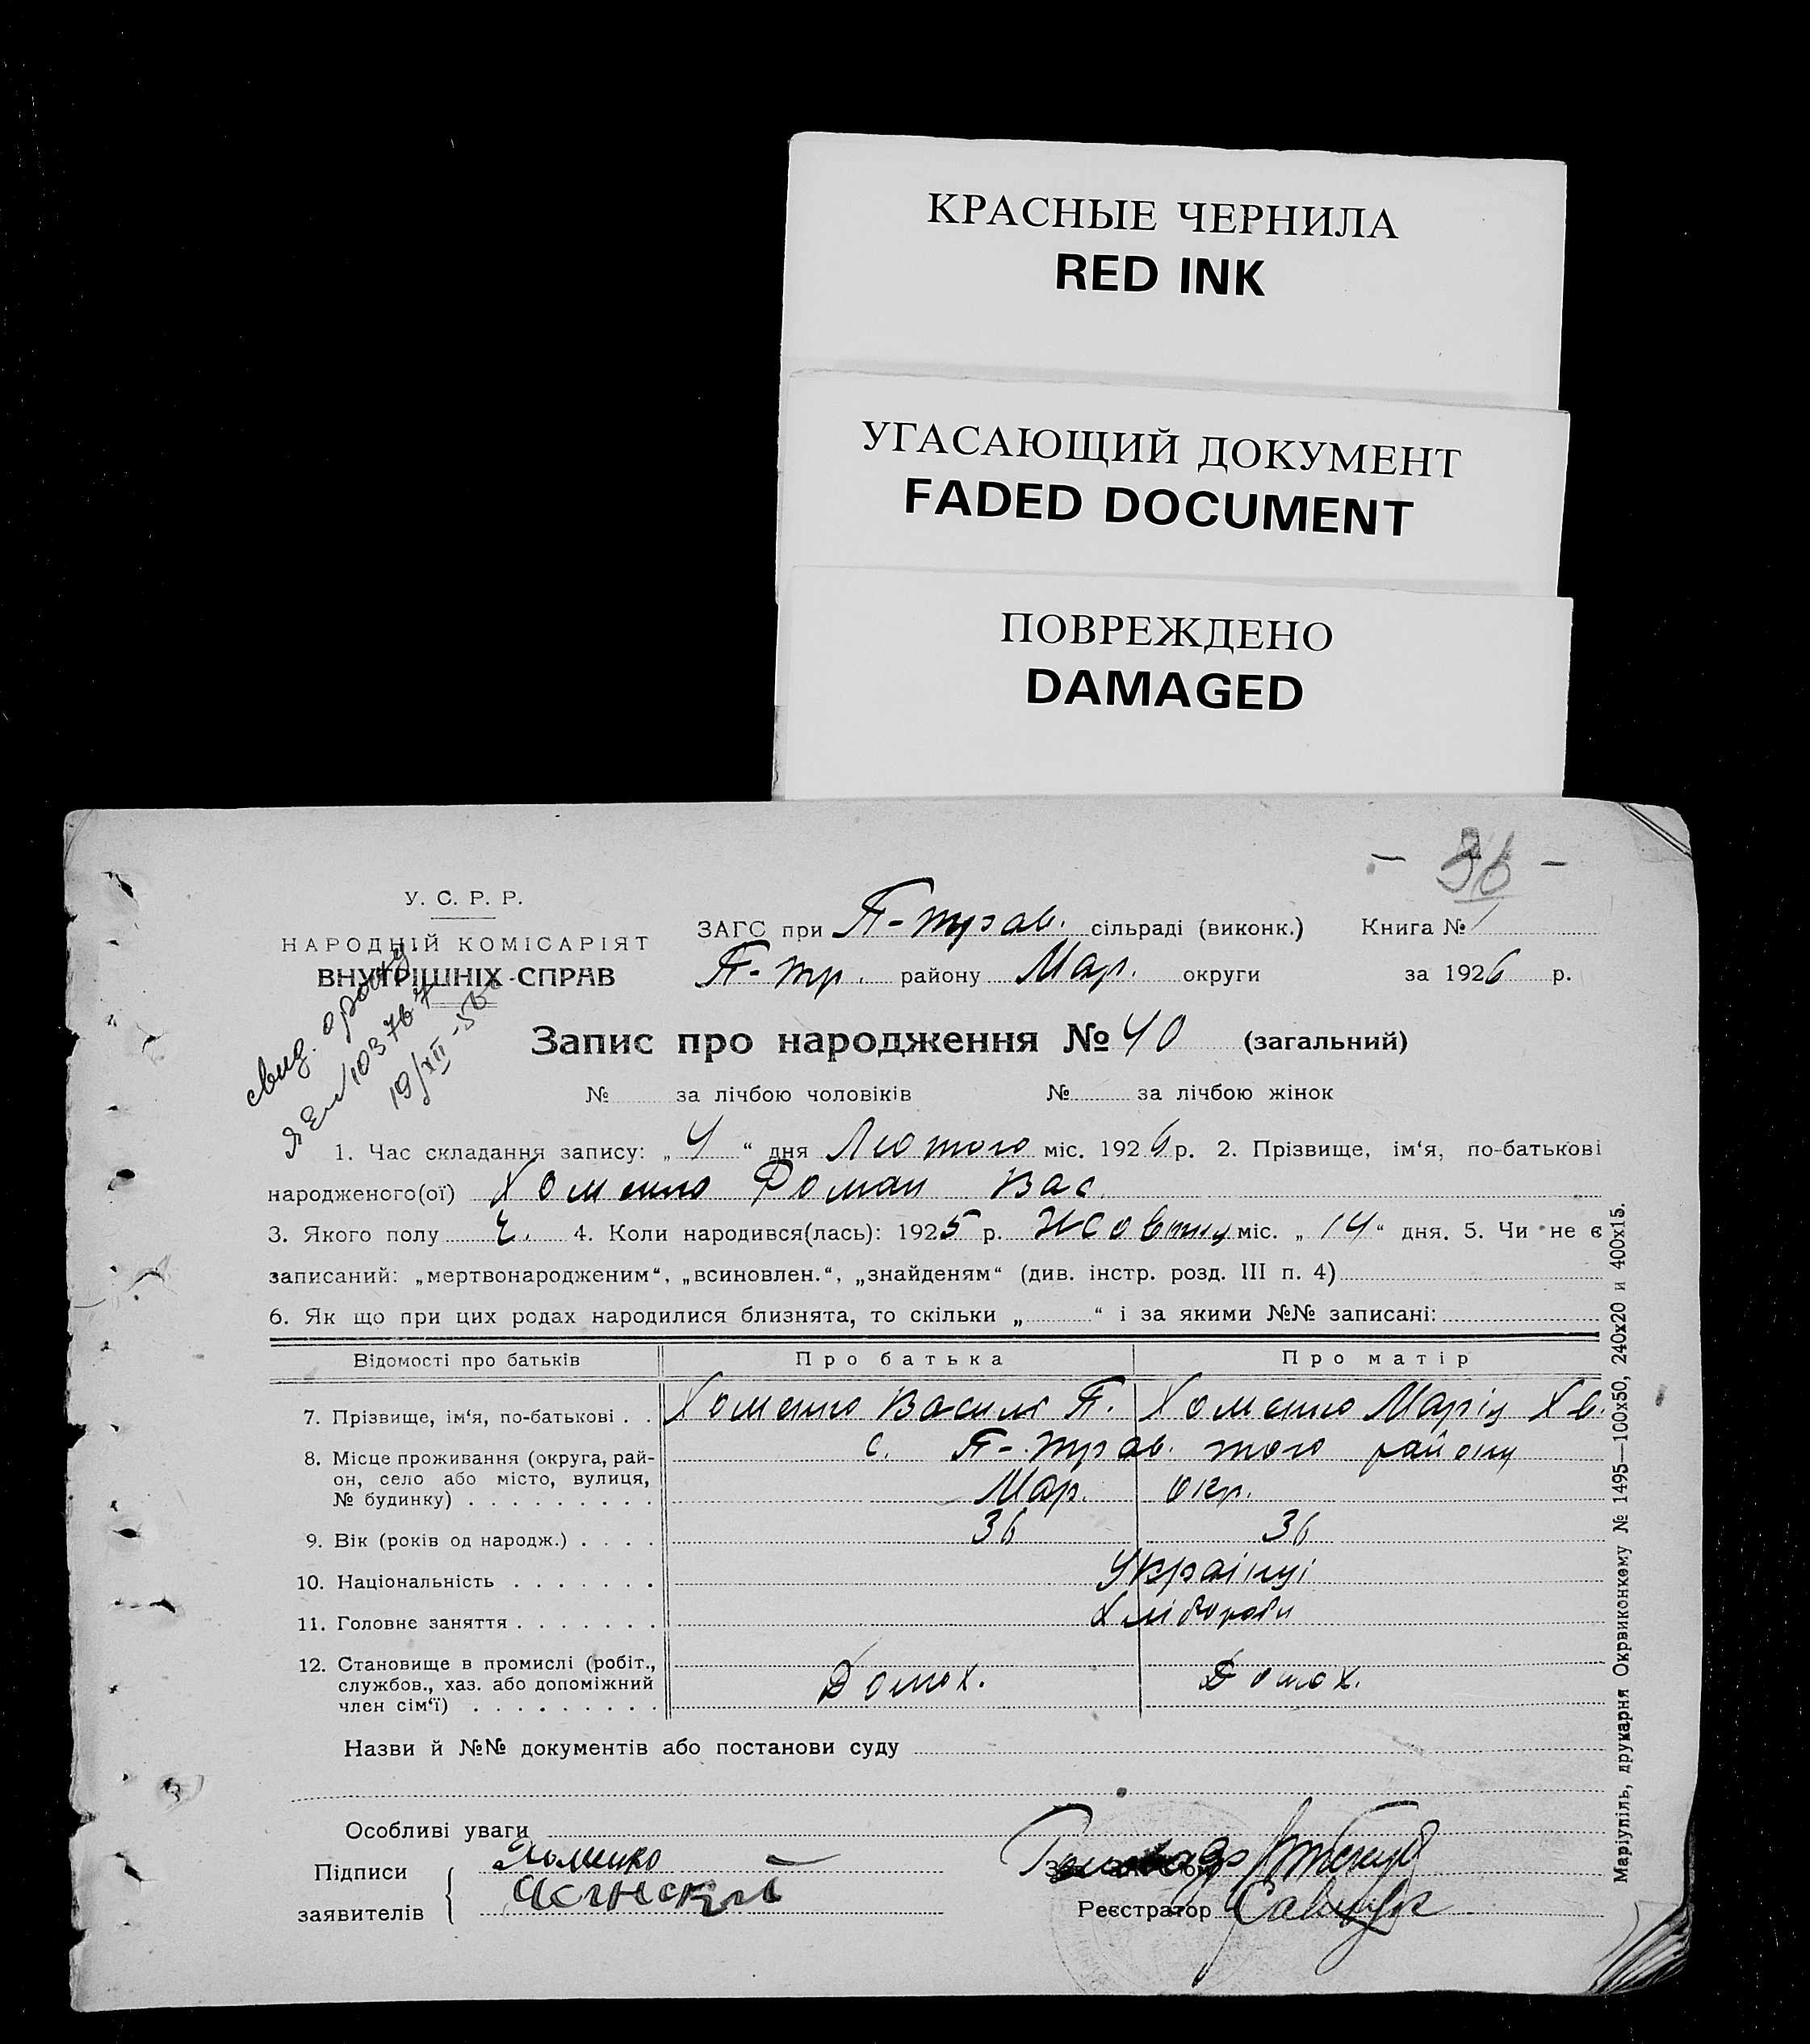 КРАСНЫЕ ЧЕРНИЛА
RED INK
УГАСАЮЩИЙ ДОКУМЕНТ
FADED DOCUMENT
ПОВРЕЖДЕНО
DAMAGED
- 36 -
У. С. Р. Р.
НАРОДНІЙ КОМІСАРІЯТ
ВНУТРІШНІХ СПРАВ
свид. о рожд.
103767
19/XII-
ЗАГС при П-трав. сільраді (виконк.) Книга № 1
П-тр. району Мар. округи за 1926 р.
Запис про народження № 40 (загальний)
№ за лічбою чоловіків № за лічбою жінок
1. Час складання запису: „4“ дня Лютого міс. 1926 р. 2. Прізвище, ім‘я, по-батькові
народженого(ої) Хоменко Роман Вас.
3. Якого полу ч. 4. Коли народився(лась): 1925 р. Жовтня міс. „14“ дня. 5. Чи не є
записаний: „мертвонародженим“, „всиновлен.“, „знайденям“ (див. інстр. розд. III п. 4)
6. Як що при цих родах народилися близнята, то скільки „ “ і за якими №№ записані:
Відомості про батьків Про батька Про матір
7. Прізвище, ім‘я, по-батькові . . Хоменко Василь П. Хоменко Марія Хв.
8. Місце проживання (округа, рай-
он, село або місто, вулиця,
№ будинку) . . . . . . . . .
с. П-трав. того району
Мар. окр.
9. Вік (років од народж.) . . . . 36 36
10. Національність . . . . . . . Українці
11. Головне заняття . . . . . . . Хлібороби
12. Становище в промислі (робіт.,
службов., хаз. або допоміжний
член сім‘ї) . . . . . . . . .
Домох. Домох.
Назви й №№ документів або постанови суду
Особливі уваги
Підписи
заявителів
Хоменко
Реєстратор
Маріупіль, друкарня Окрвиконкому № 1495—100х50, 240х20 и 400х15.